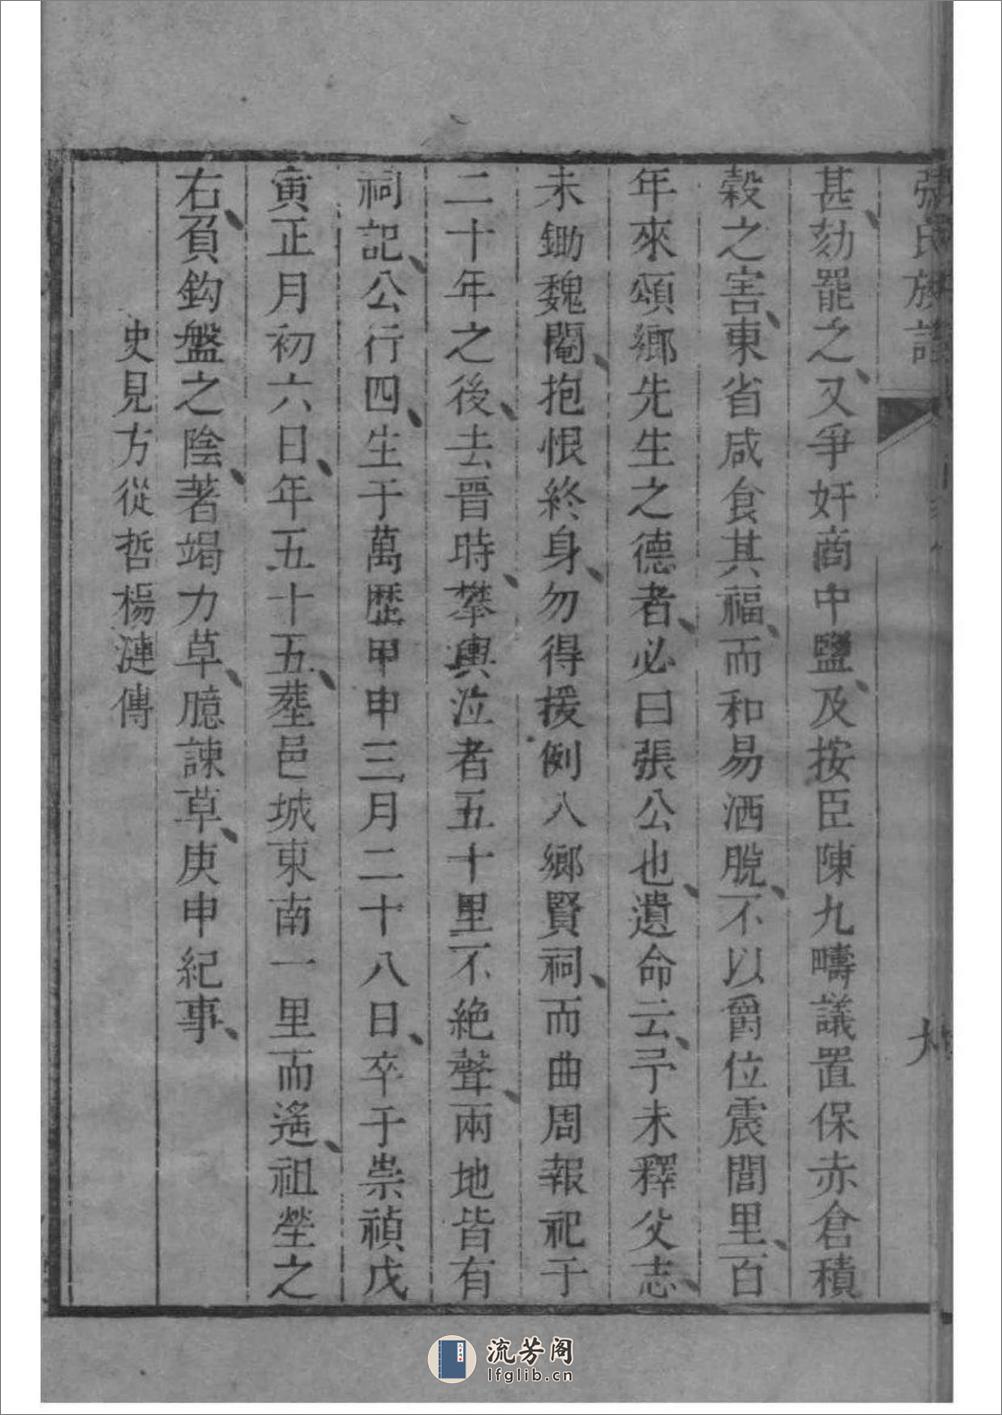 張氏族譜
甚、劾罷之、又爭奸商中鹽、及按臣陳九疇議置保赤倉積
穀之害、東省咸食其福、而和易洒脫、不以爵位震閭里、百
年來頌鄉先生之德者、必曰張公也、遺命云、予未釋父志、
未鋤魏閹、抱恨終身、勿得援例入鄉賢祠、而曲周報祀于
二十年之後、去晉時、攀輿泣者五十里不絕聲、兩地皆有
祠記、公行四、生于萬歷甲申三月二十八日、卒于崇禎戊
寅正月初六日、年五十五、塟邑城東南一里而遙、祖塋之
右、負鈎盤之陰、著竭力草、臆諫草、庚申紀事、
史見方從哲楊漣傳
流芳阁
lfglib.cn